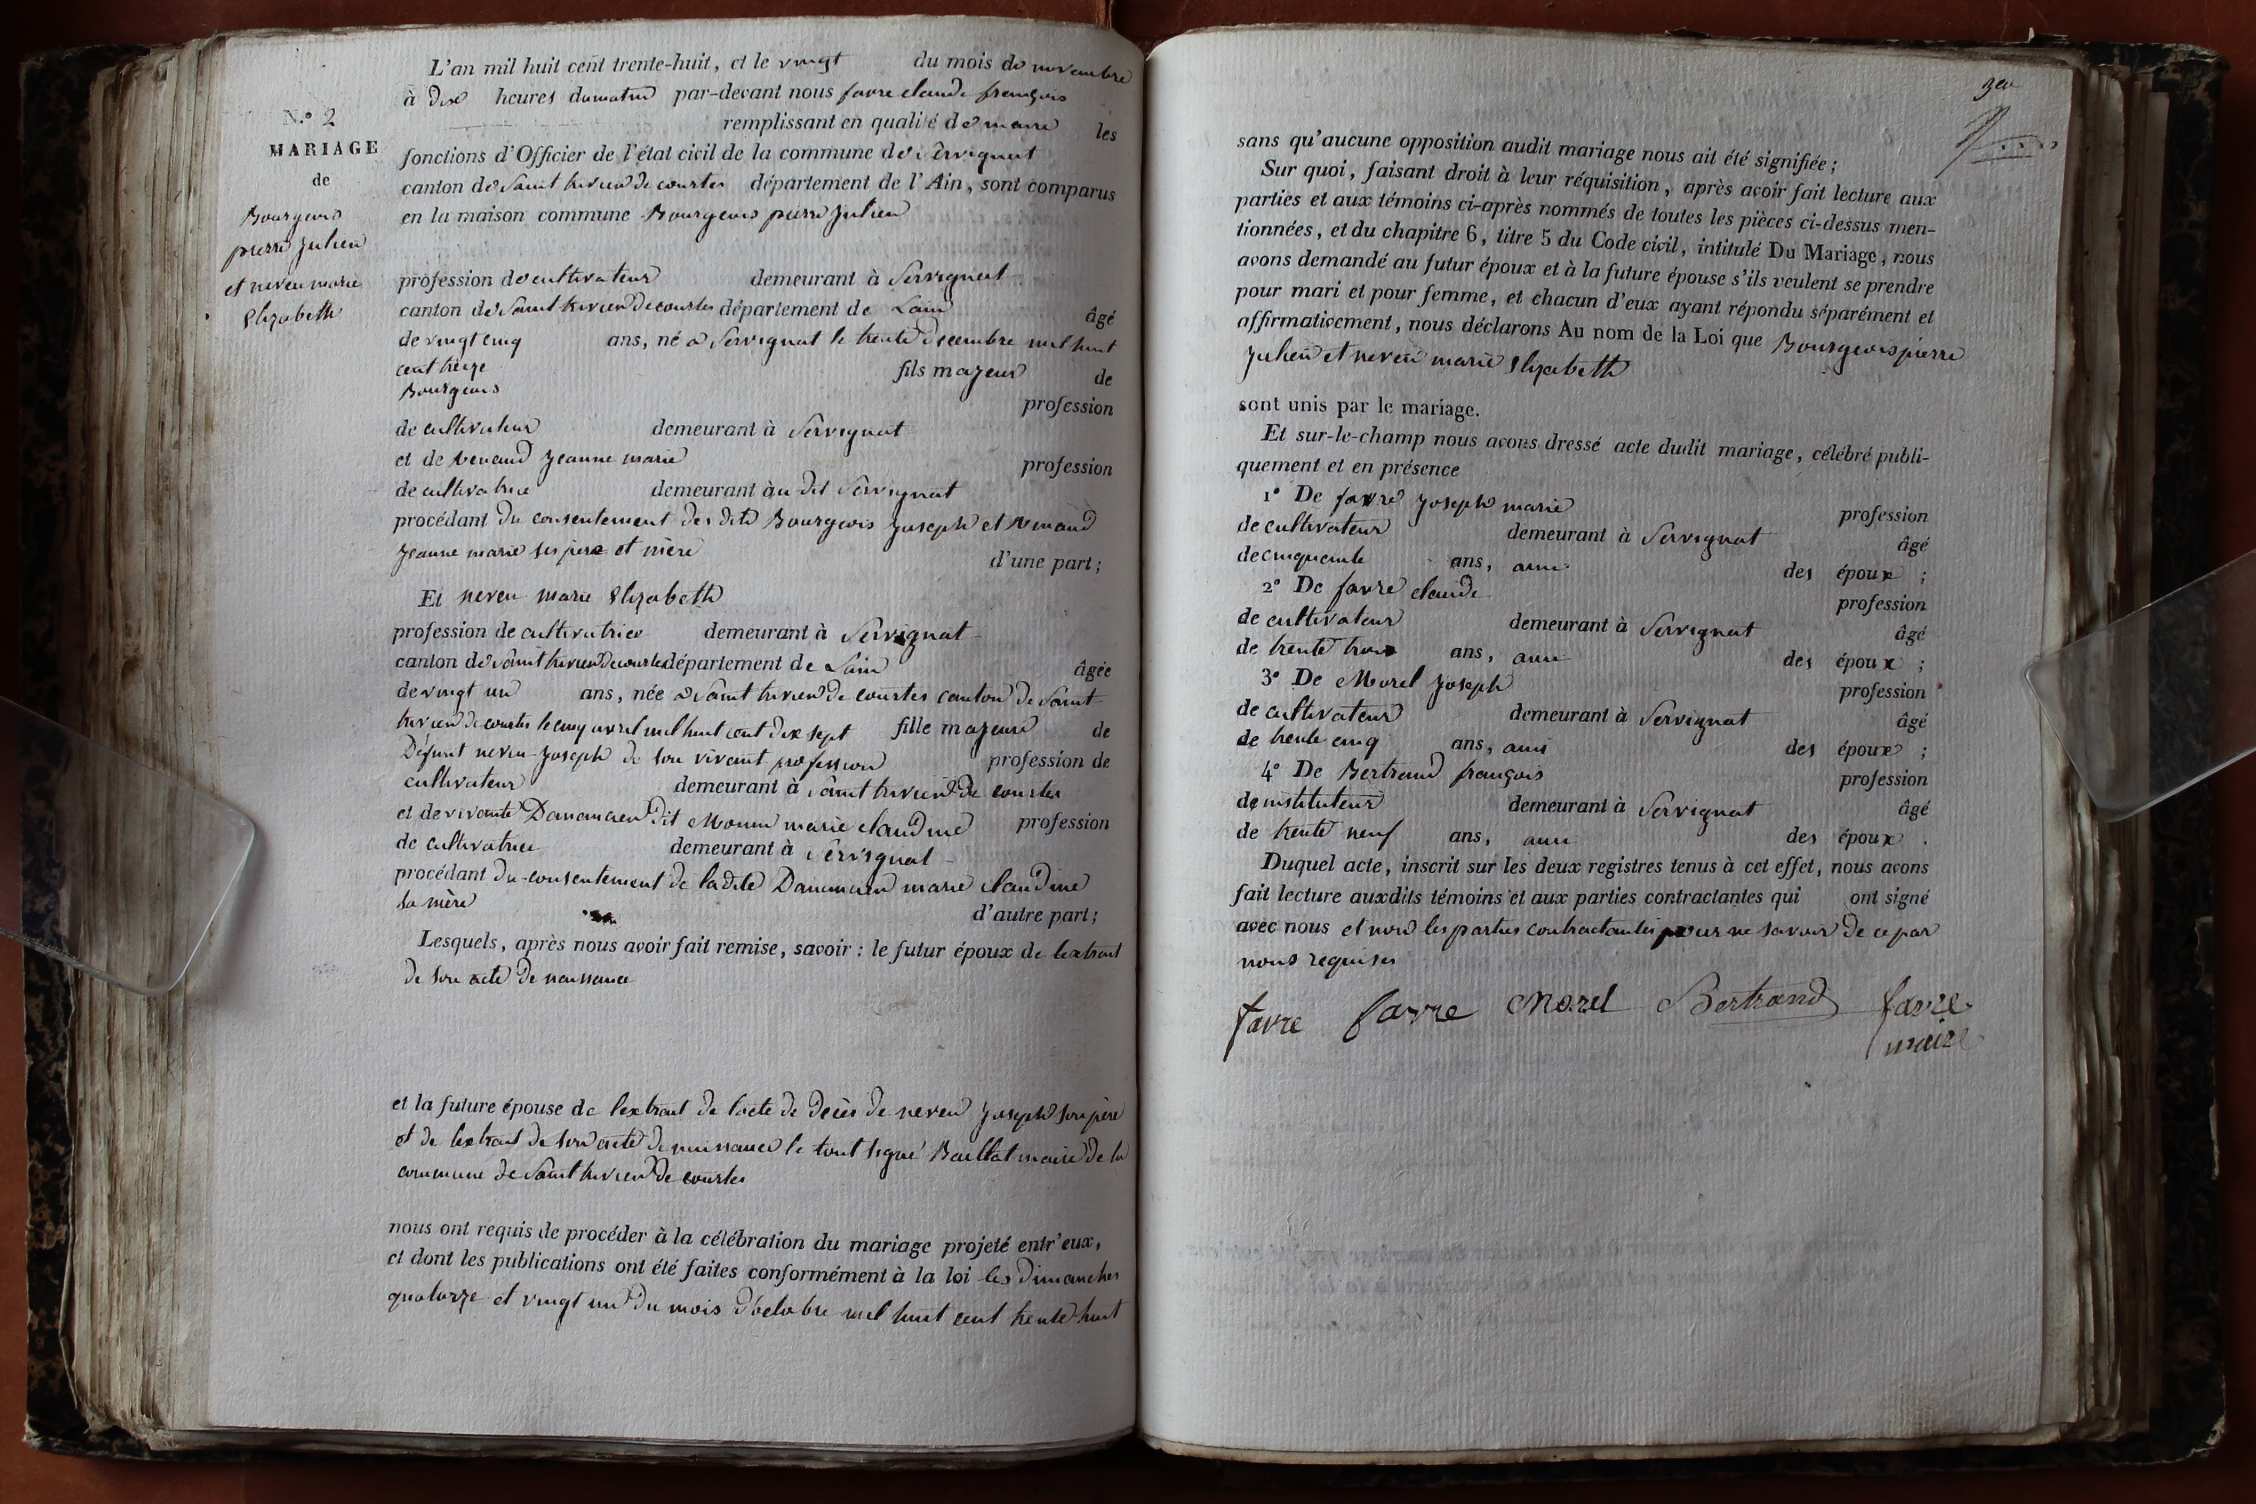 N.º 2
MARIAGE
de
Bourgeois
pierre julien
et neveu marie
Elizabeth
L'an mil huit cent trente-huit, et le vingt du mois de novembre
à dix heures du matin par-devant nous favre claude françois
remplissant en qualité de maire les
fonctions d'Officier de l'état civil de la commune de servignat
canton de Saint trivier de courtes département de l'Ain, sont comparus
en la maison commune Bourgeois pierre julien
profession de cultivateur demeurant à Servignat
canton de Saint trivier de courtes département de Lain âgé
de vingt cinq ans, né a Servignat le trente decembre mil huit
cent treize fils majeur de
Bourgeois profession
de cultivateur demeurant à Servignat
et de renaud jeanne marie profession
de cultivatrice demeurant à u dit Servignat
procédant du consentement des dits Bourgeois joseph et renaud
jeanne marie ses pere et mère d'une part;
Et neveu marie Elizabeth
profession de cultivatrice demeurant à Servignat
canton de saint trivier de courtes département de Lain âgée
de vingt un ans, née a saint trivier de courtes canton de saint
trivier de courtes le cinq avril mil huit cent dix sept fille majeure de
Défunt neveu joseph de son vivant profession profession de
cultivateur demeurant à saint trivier de courtes
et de vivante Danancier dit Monin marie claudine profession
de cultivatrice demeurant à Servignat
procédant du consentement de ladite Danancier marie claudine
sa mère d'autre part;
Lesquels, après nous avoir fait remise, savoir : le futur époux de lextrait
de son acte de naissance
et la future épouse de lextrait de lacte de décès de neveu joseph son père
et de lextrait de son acte de naissance le tout signé Baillat maire de la
commune de saint trivier de courtes
nous ont requis de procéder à la célébration du mariage projeté entr'eux,
et dont les publications ont été faites conformément à la loi les dimanches
quatorze et vingt un du mois d'octobre mil huit cent trente huit
sans qu'aucune opposition audit mariage nous ait été signifiée;
Sur quoi, faisant droit à leur réquisition, après avoir fait lecture aux
parties et aux témoins ci-après nommés de toutes les pièces ci-dessus men-
tionnées, et du chapitre 6, titre 5 du Code civil, intitulé Du Mariage, nous
avons demandé au futur époux et à la future épouse s'ils veulent se prendre
pour mari et pour femme, et chacun d'eux ayant répondu séparément et
affirmativement, nous déclarons Au nom de la Loi que Bourgeois pierre
julien et neveu marie Elizabeth
sont unis par le mariage.
Et sur-le-champ nous avons dressé acte dudit mariage, célébré publi-
quement et en présence
1º De favre joseph marie profession
de cultivateur demeurant à Servignat âgé
de cinquante ans, ami des époux ;
2º De favre claude profession
de cultivateur demeurant à Servignat âgé
de trente trois ans, ami des époux ;
3º De Morel joseph profession
de cultivateur demeurant à Servignat âgé
de trente cinq ans, ami des époux ;
4º De Bertrand françois profession
de instituteur demeurant à Servignat âgé
de trente neuf ans, ami des époux .
Duquel acte, inscrit sur les deux registres tenus à cet effet, nous avons
fait lecture auxdits témoins et aux parties contractantes qui ont signé
avec nous et non les parties contractantes pour ne savoir de ce par
nous requises
favre favre Morel Bertrand favre
maire